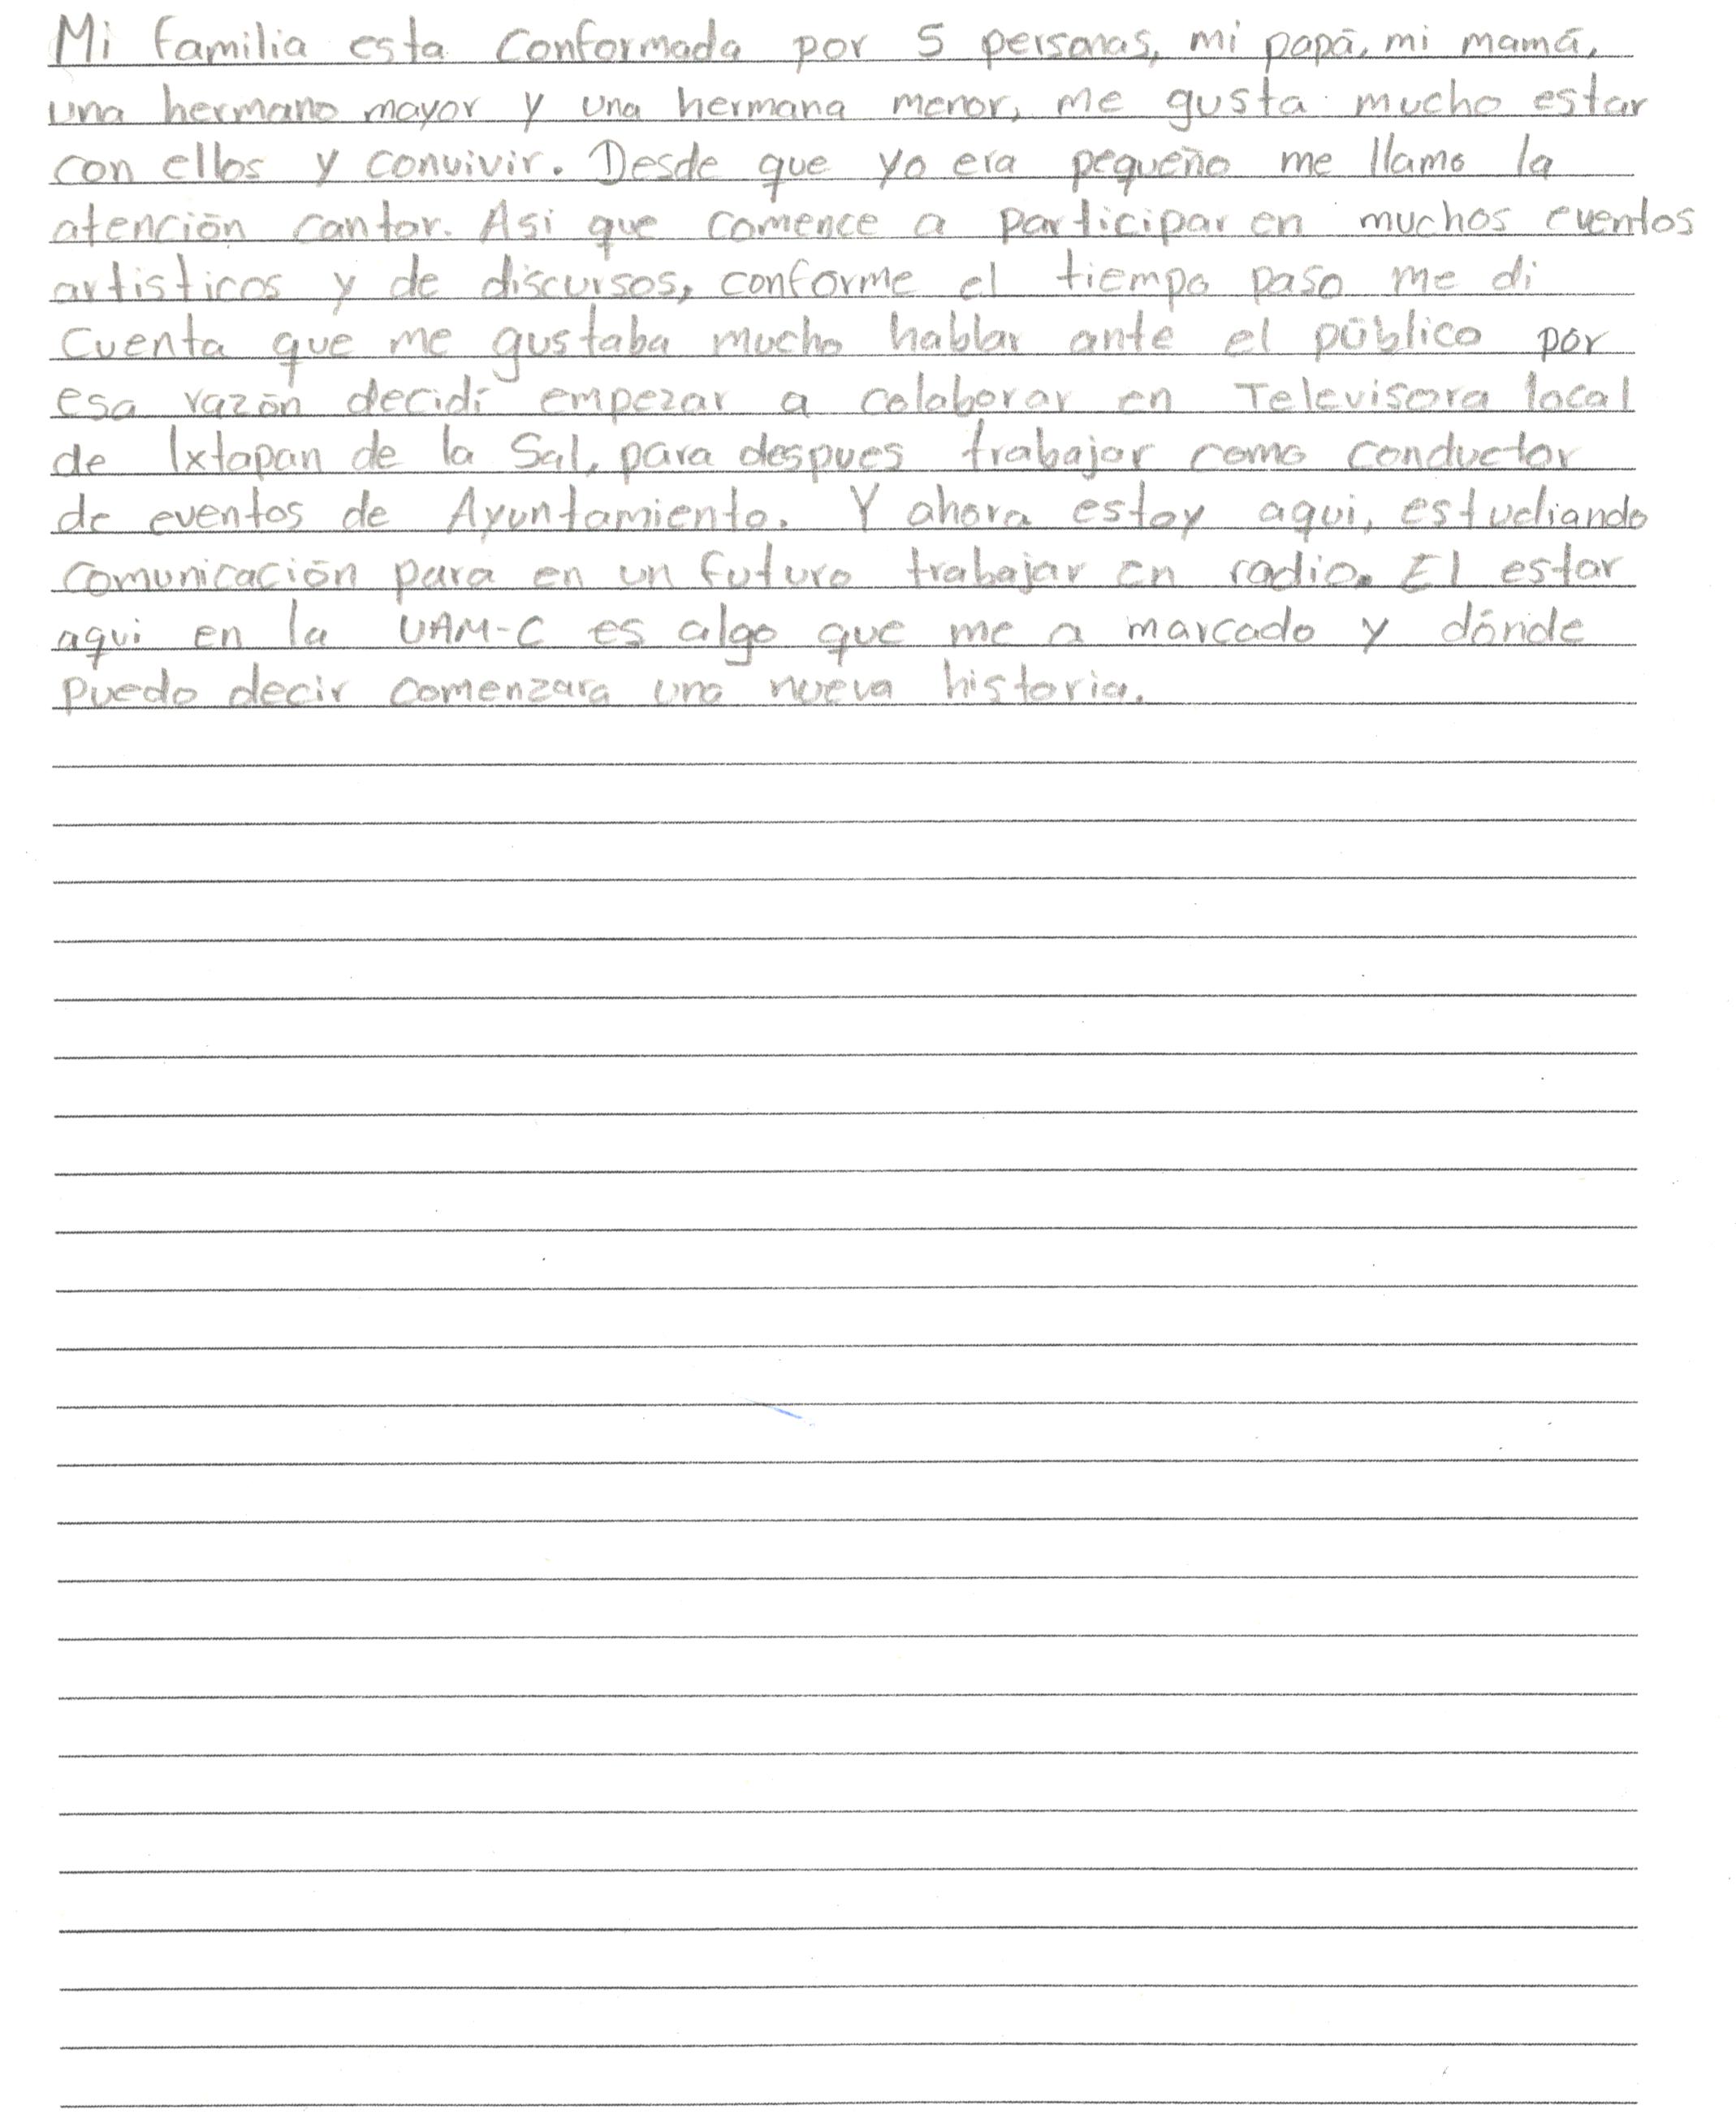 Mi familia esta conformada por 5 personas, mi papá, mi mamá,
una hermano mayor y una hermana menor, me gusta mucho estar
con ellos y convivir. Desde que yo era pequeño me llamo la
atención cantar. Asi que comence a participar en muchos eventos
artisticos y de discursos, conforme el tiempo paso me di
cuenta que me gustaba mucho hablar ante el público por
esa razón decidí empezar a colaborar en Televisora local
de Ixtapan de la Sal, para despues trabajar como conductor
de eventos de Ayuntamiento. Y ahora estoy aqui, estudiando
comunicación para en un futuro trabajar en radio. El estar
aqui en la UAM-C es algo que me a marcado y dónde
puedo decir comenzara una nueva historia.